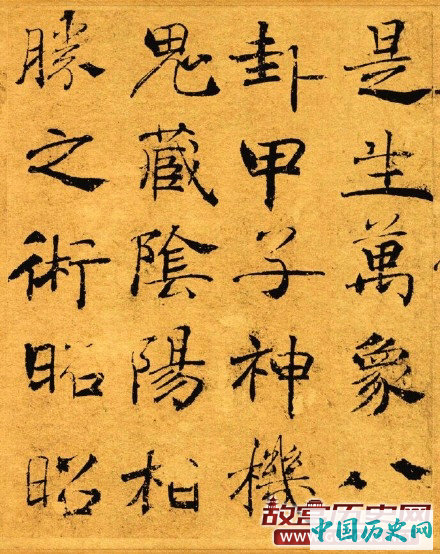 是生萬象八
卦甲子神機
鬼藏陰陽相
勝之術昭昭
故宫历史网
中国历史网